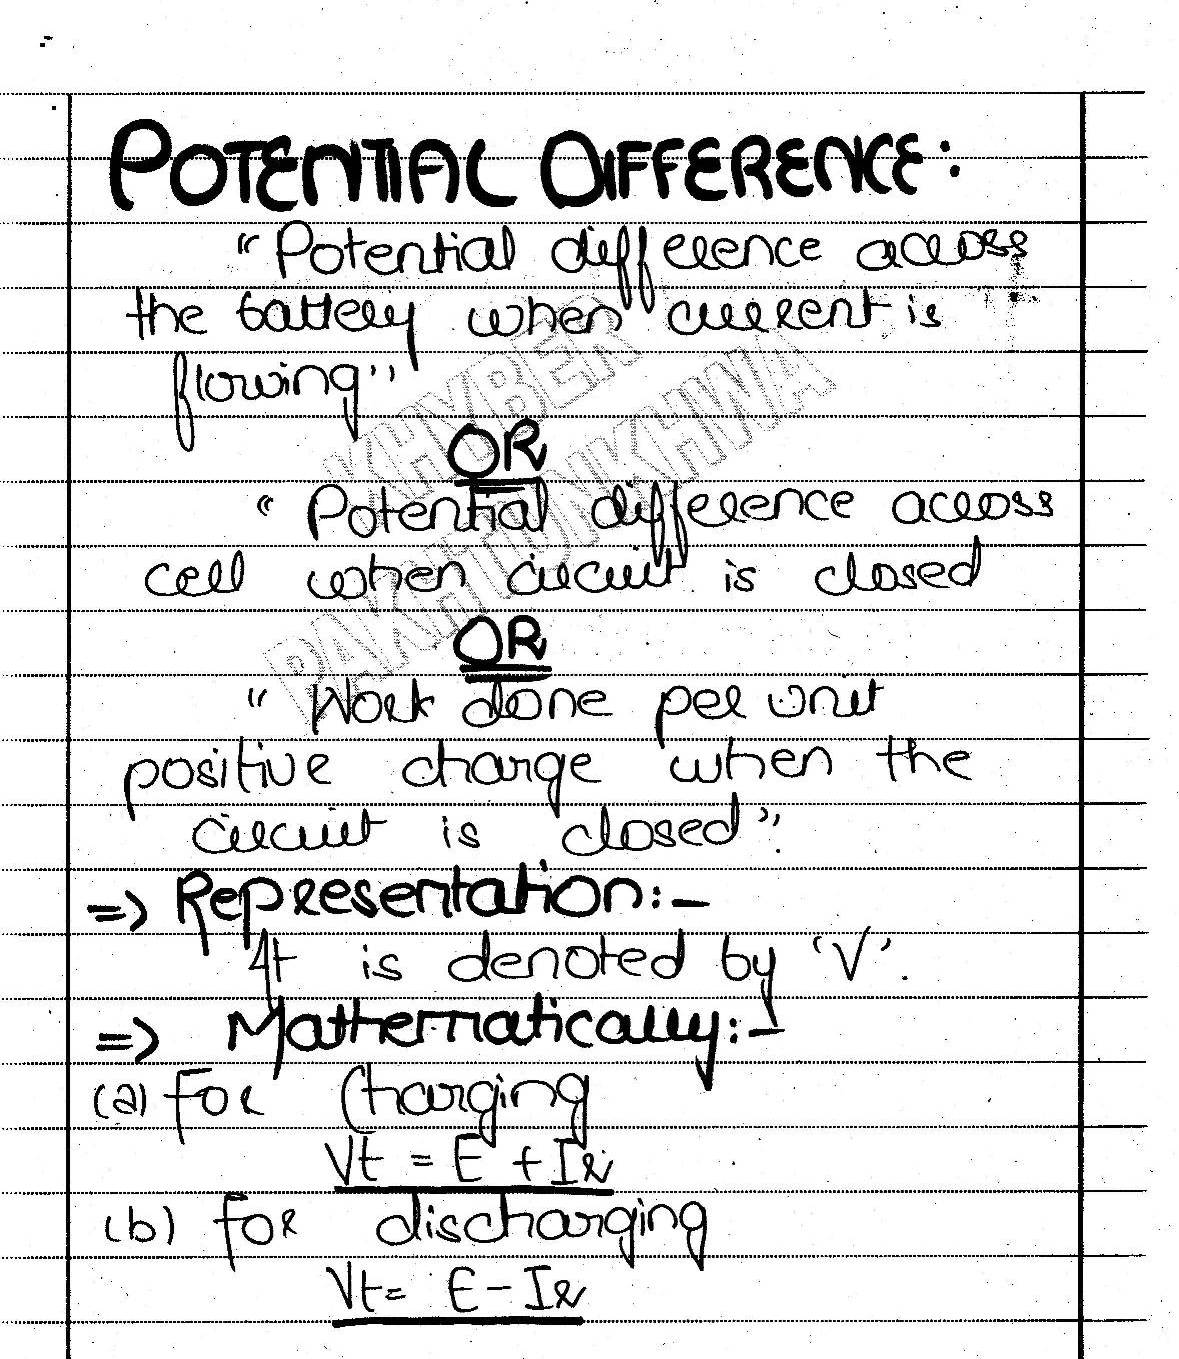 POTENTIAL DIFFERENCE:
"Potential difference across
the battery when current is
flowing"
OR
"Potential difference across
cell when circuit is closed
OR
"Work done per unit
positive charge when the
circuit is closed".
=> Representation:-
It is denoted by 'V'.
=> Mathematically:-
(a) For Charging
Vt = E + Ir
(b) For discharging
Vt = E - Ir
KHYBER
PAKHTUNKHWA